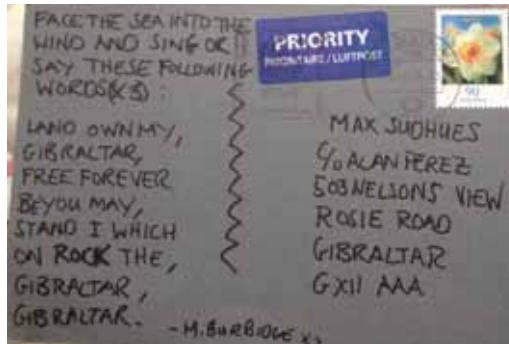 FACE THE SEA INTO THE
WIND AND SING OR
SAY THESE FOLLOWING
WORDS(x3) :
LAND OWN MY,
GIBRALTAR,
FREE FOREVER
BE YOU MAY,
STAND I WHICH
ON ROCK THE,
GIBRALTAR,
GIBRALTAR.
- M. BURBIDGE xx
PRIORITY
PRIORITAIRE / LUFTPOST
90
MAX SUDHUES
C/O ALAN PEREZ
503 NELSONS VIEW
ROSIE ROAD
GIBRALTAR
GX11 AAA